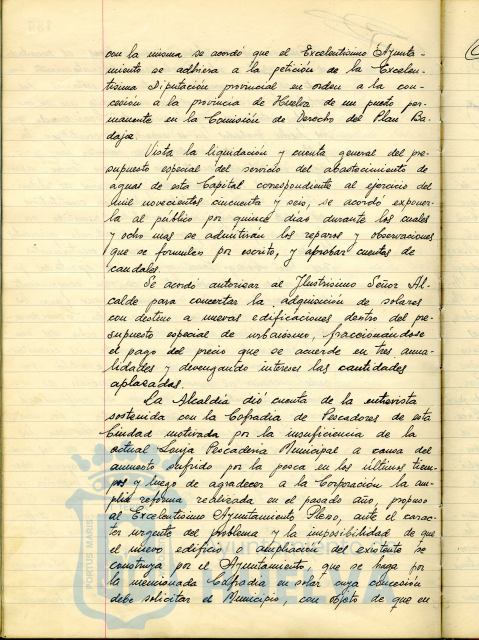 con la misma se acordó que el Excelentísimo Ayunta-
miento se adhiera a la petición de la Excelen-
tísima Diputación provincial en orden a la con-
cesión a la provincia de Huelva de un puesto per-
manente en la Comisión de Derecho del Plan Ba-
dajoz.
Vista la liquidación y cuenta general del pre-
supuesto especial del servicio del abastecimiento de
aguas de esta Capital correspondiente al ejercicio del
mil novecientos cincuenta y seis, se acordó exponer-
la al público por quince días durante los cuales
y ocho mas se admitirán los reparos y observaciones
que se formulen por escrito, y aprobar cuentas de
caudales.
Se acordó autorizar al Ilustrísimo Señor Al-
calde para concertar la adquisición de solares
con destino a nuevas edificaciones dentro del pre-
supuesto especial de urbanismo, fraccionándose
el pago del precio que se acuerde en tres anua-
lidades y devengando intereses las cantidades
aplazadas.
La Alcaldía dió cuenta de la entrevista
sostenida con la Cofradía de Pescadores de esta
Ciudad motivada por la insuficiencia de la
actual Lonja Pescadería Municipal a causa del
aumento sufrido por la pesca en los últimos tiem-
pos y luego de agradecer a la Corporación la am-
plia reforma realizada en el pasado año, propuso
al Excelentísimo Ayuntamiento Pleno, ante el carac-
ter urgente del problema y la imposibilidad de que
el nuevo edificio o ampliación del existente se
construya por el Ayuntamiento, que se haga por
la mencionada Cofradía en solar cuya concesión
debe solicitar el Municipio, con objeto de que en
PORTUS MARIS